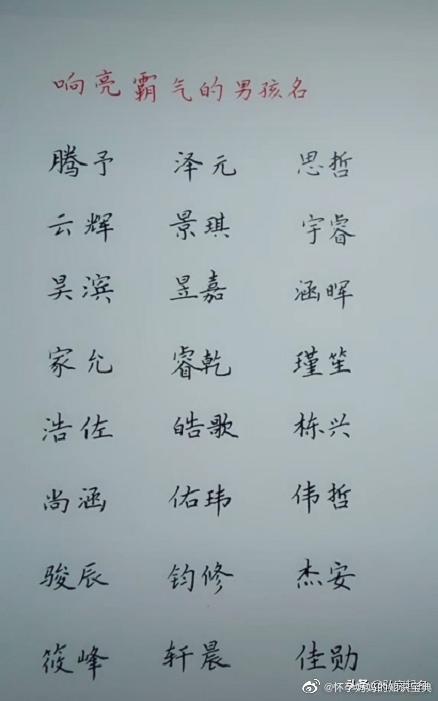 响亮霸气的男孩名
腾予 泽元 思哲
云辉 景琪 宇睿
昊滨 昱嘉 涵晖
家允 睿乾 瑾笙
浩佐 皓歌 栋兴
尚涵 佑玮 伟哲
骏辰 钧修 杰安
筱峰 轩晨 佳勋
头条@弘宸起名
@怀孕妈妈的知识宝典